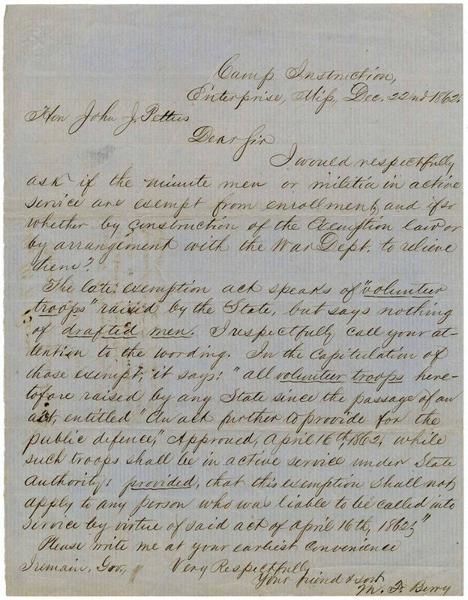 Camp Instruction,
Enterprise, Miss, Dec. 22nd 1862.
Hon John J. Pettus
Dear Sir
I would respectfully
ask if the minute men or militia in active
service are exempt from enrollment, and if so
whether by construction of the Exemption law or
by arrangement with the War Dept. to relieve
them?
The late exemption act speaks of "volunteer
troops" raised by the State, but says nothing
of drafted men. I respectfully call your at-
tention to the wording. In the Capitulation of
those exempt, it says: "all volunteer troops here-
tofore raised by any State since the passage of an
act, entitled "An act further to provide for the
public defence," Approved, April 16th, 1862, while
such troops shall be in active service under State
Authority: provided, that this exemption shall not
apply to any person who was liable to be called into
service by virtue of said act of April 16th, 1862;"
Please write me at your earliest convenience
I remain, Gov., Very Respectfully
Your friend &
M. F. Berry